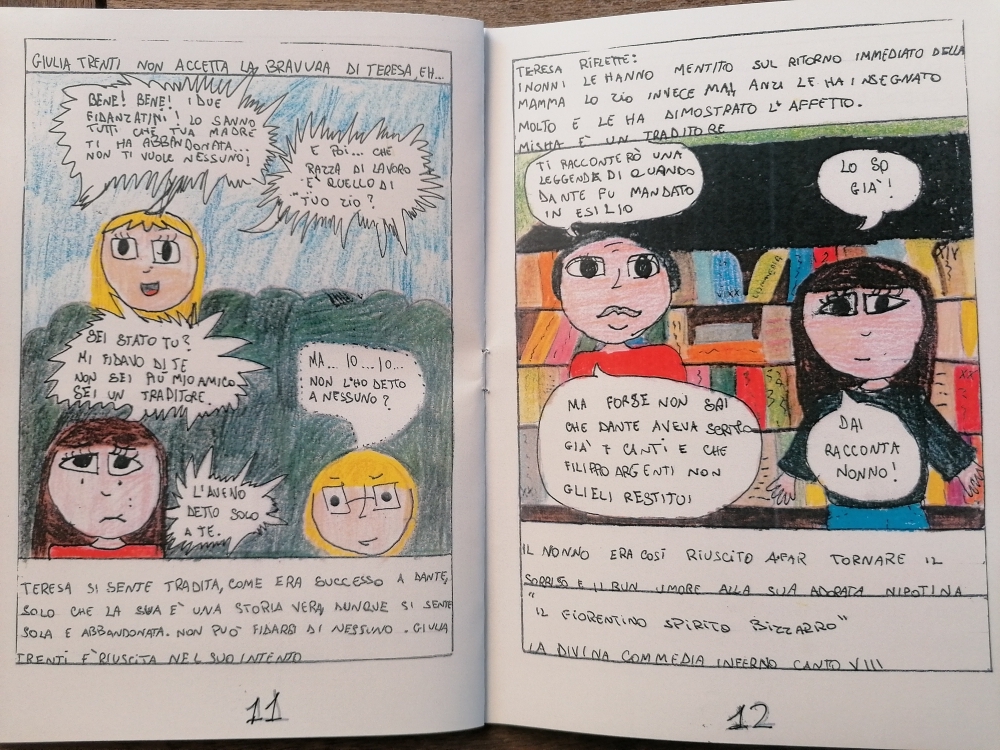 GIULIA TRENTI NON ACCETTA LA BRAVURA DI TERESA, EH...
BENE! BENE! I DUE
FIDANZATINI! LO SANNO
TUTTI CHE TUA MADRE
TI HA ABBANDONATA...
NON TI VUOLE NESSUNO!
E POI... CHE
RAZZA DI LAVORO
E' QUELLO DI
TUO ZIO?
SEI STATO TU?
MI FIDAVO DI TE
NON SEI PIÙ MIO AMICO
SEI UN TRADITORE.
MA... IO... IO...
NON L'HO DETTO
A NESSUNO?
L'AVENO
DETTO SOLO
A TE.
TERESA SI SENTE TRADITA, COME ERA SUCCESSO A DANTE,
SOLO CHE LA SUA E' UNA STORIA VERA, DUNQUE SI SENTE
SOLA E ABBANDONATA. NON PUÒ FIDARSI DI NESSUNO. GIULIA
TRENTI E' RIUSCITA NEL SUO INTENTO
11
TERESA RIFLETTE:
I NONNI LE HANNO MENTITO SUL RITORNO IMMEDIATO DELLA
MAMMA LO ZIO INVECE MAI, ANZI LE HA INSEGNATO
MOLTO E LE HA DIMOSTRATO L'AFFETTO.
MISHA E' UN TRADITORE
TI RACCONTERÒ UNA
LEGGENDA DI QUANDO
DANTE FU MANDATO
IN ESILIO
LO SO
GIA'!
MA FORSE NON SAI
CHE DANTE AVEVA SCRITTO
GIA' 7 CANTI E CHE
FILIPPO ARGENTI NON
GLIELI RESTITUÌ
DAI
RACCONTA
NONNO!
IL NONNO ERA COSÌ RIUSCITO A FAR TORNARE IL
SORRISO E IL BUN UMORE ALLA SUA ADORATA NIPOTINA
"IL FIORENTINO SPIRITO BIZZARRO"
LA DIVINA COMMEDIA INFERNO CANTO VIII
12